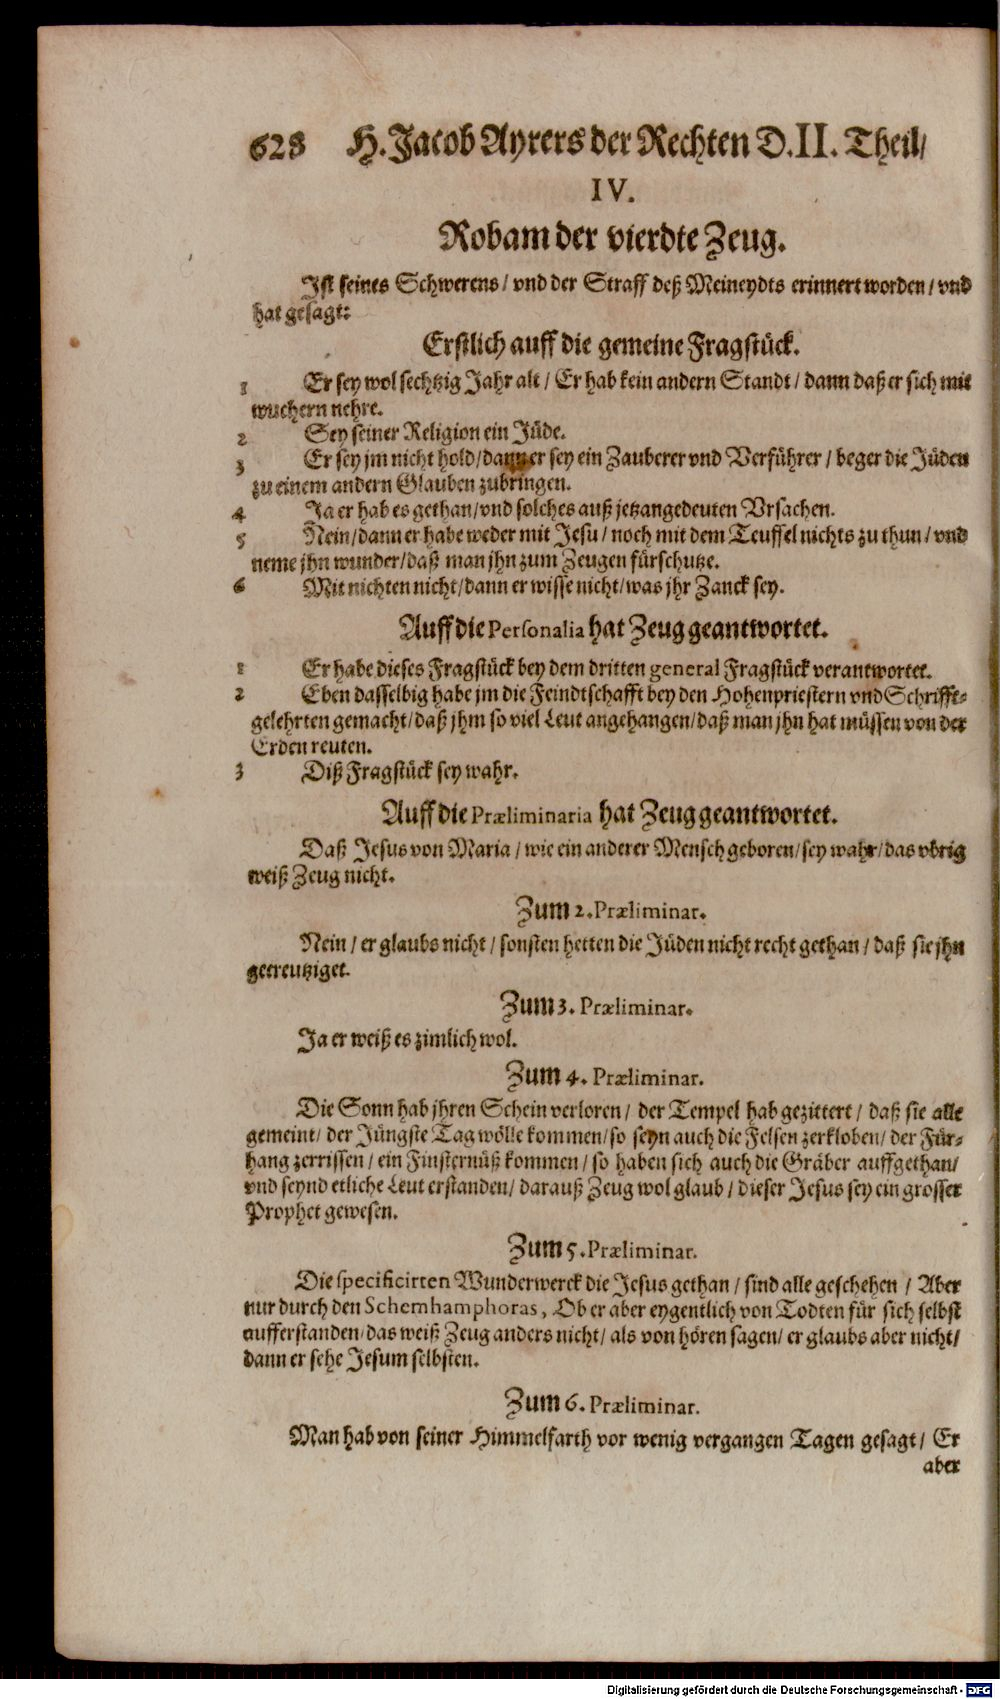 628 H. Jacob Ayrers der Rechten D. II. Theil/
IV.
Robam der vierdte Zeug.
Ist seines Schwerens / vnd der Straff deß Meineydts erinnert worden / vnd
hat gesagt:
Erstlich auff die gemeine Fragstück.
1 Er sey wol sechtzig Jahr alt / Er hab kein andern Standt / dann daß er sich mit
wuchern nehre.
2 Sey seiner Religion ein Jüde.
3 Er sey jm nicht hold / dann er sey ein Zauberer vnd Verführer / beger die Jüden
zu einem andern Glauben zubringen.
4 Ja er hab es gethan / vnd solches auß jetzangedeuten Vrsachen.
5 Nein / dann er habe weder mit Jesu / noch mit dem Teuffel nichts zu thun / vnd
neme jhn wunder / daß man jhn zum Zeugen fürschutze.
6 Mit nichten nicht / dann er wisse nicht / was jhr Zanck sey.
Auff die Personalia hat Zeug geantwortet.
1 Er habe dieses Fragstück bey dem dritten general Fragstück verantwortet.
2 Eben dasselbig habe jm die Feindtschafft bey den Hohenpriestern vnd Schrifft-
gelehrten gemacht / daß jhm so viel Leut angehangen / daß man jhn hat müssen von der
Erden reuten.
3 Diß Fragstück sey wahr.
Auff die Præliminaria hat Zeug geantwortet.
Daß Jesus von Maria / wie ein anderer Mensch geboren / sey wahr / das vbrig
weiß Zeug nicht.
Zum 2. Præliminar.
Nein / er glaubs nicht / sonsten hetten die Jüden nicht recht gethan / daß sie jhn
gecreutziget.
Zum 3. Præliminar.
Ja er weiß es zimlich wol.
Zum 4. Præliminar.
Die Sonn hab jhren Schein verloren / der Tempel hab gezittert / daß sie alle
gemeint / der Jüngste Tag wölle kommen / so seyn auch die Felsen zerkloben / der Für-
hang zerrissen / ein Finsternüß kommen / so haben sich auch die Gräber auffgethan /
vnd seynd etliche Leut erstanden / darauß Zeug wol glaub / dieser Jesus sey ein grosser
Prophet gewesen.
Zum 5. Præliminar.
Die specificirten Wunderwerck die Jesus gethan / sind alle geschehen / Aber
nur durch den Schemhamphoras, Ob er aber eygentlich von Todten für sich selbst
aufferstanden / das weiß Zeug anders nicht / als von hören sagen / er glaubs aber nicht /
dann er sehe Jesum selbsten.
Zum 6. Præliminar.
Man hab von seiner Himmelfarth vor wenig vergangen Tagen gesagt / Er
aber
Digitalisierung gefördert durch die Deutsche Forschungsgemeinschaft - DFG